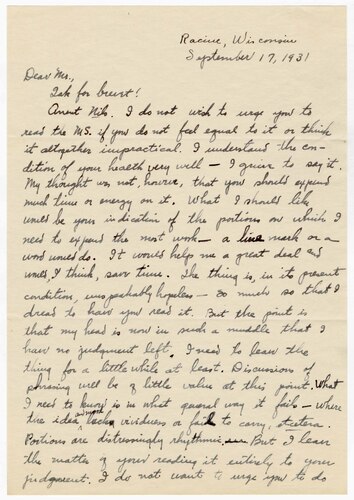 Racine, Wisconsin
September 17, 1931
Dear Ms.,
Tak for brevet!
Anent Nils. I do not wish to urge you to
read the MS. if you do not feel equal to it or think
it altogether impractical. I understand the con-
dition of your health very well — I grieve to say it.
My thought was not, however, that you should expend
much time or energy on it. What I should like
would be your indication of the portions on which I
need to expend the most work — a line mark or a
word would do. It would help me a great deal and
would, I think, save time. The thing is, in its present
condition, probably hopeless — so much so that I
dread to have you read it. But the point is
that my head is now in such a muddle that I
have no judgment left. I need to leave the
thing for a little while at least. Discussions of
phrasing will be of little value at this point. What
I need to know is in what general way it fails — where
the idea lacks vividness or fails to carry, etcetera.
Portions are distressingly rhythmic But I leave
the matter of your reading it entirely to your
judgment. I do not want to urge you to do